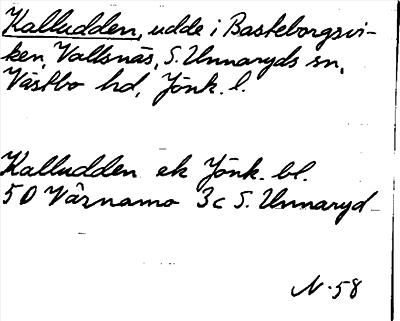 Kalludden, udde i Basteborgsvi-
ken, Vallsnäs, S. Unnaryds sn,
Västbo hd, Jönk. l.
Kalludden ek Jönk. bl.
50 Värnamo 3c S. Unnaryd
N-58